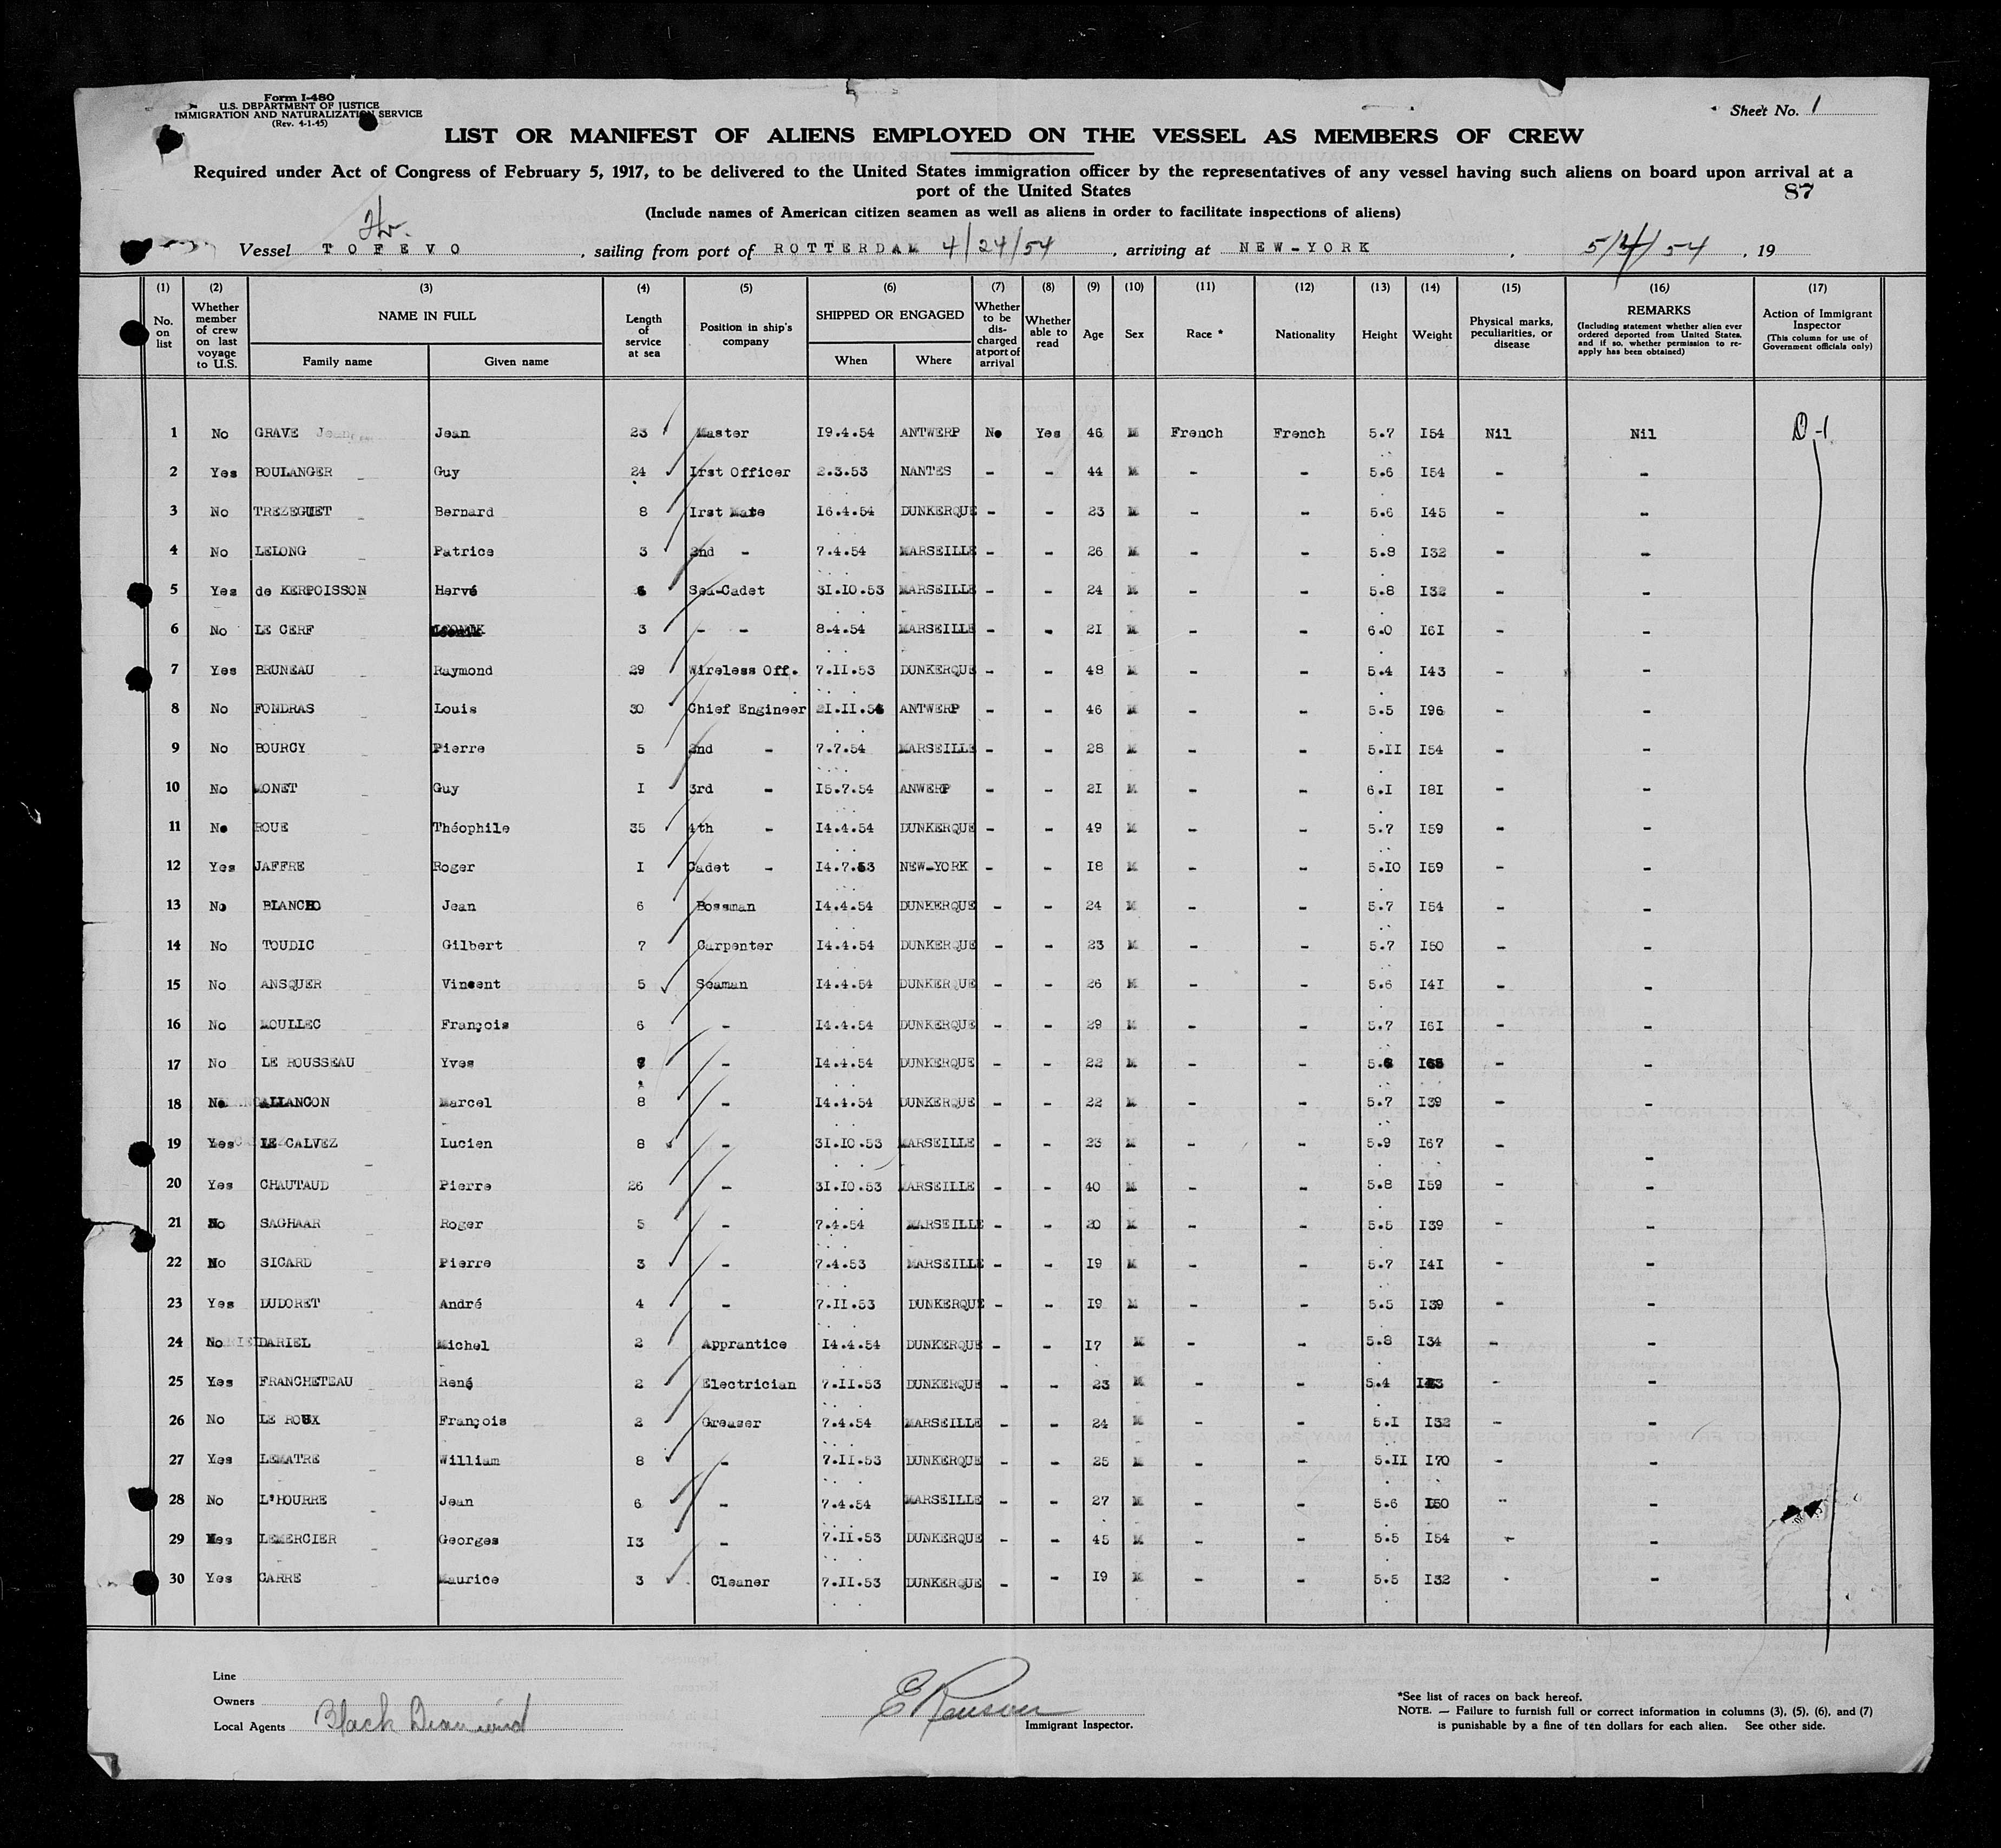 Form I-480
U.S. DEPARTMENT OF JUSTICE
IMMIGRATION AND NATURALIZATION SERVICE
(Rev. 4-1-45)
Sheet No. 1
LIST OR MANIFEST OF ALIENS EMPLOYED ON THE VESSEL AS MEMBERS OF CREW
Required under Act of Congress of February 5, 1917, to be delivered to the United States immigration officer by the representatives of any vessel having such aliens on board upon arrival at a
port of the United States
87
(Include names of American citizen seamen as well as aliens in order to facilitate inspections of aliens)
Vessel TOFEVO, sailing from port of ROTTERDAM 4/24/54, arriving at NEW-YORK, 5/4/54, 19
(1) (2) (3) (4) (5) (6) (7) (8) (9) (10) (11) (12) (13) (14) (15) (16) (17)
No. on list
Whether member of crew on last voyage to U.S.
NAME IN FULL
Family name
Given name
Length of service at sea
Position in ship's company
SHIPPED OR ENGAGED
When
Where
Whether to be discharged at port of arrival
Whether able to read
Age
Sex
Race *
Nationality
Height
Weight
Physical marks, peculiarities, or disease
REMARKS
(Including statement whether alien ever ordered deported from United States, and if so, whether permission to reapply has been obtained)
Action of Immigrant Inspector
(This column for use of Government officials only)
1 No GRAVE Jean 23 Master 19.4.54 ANTWERP No Yes 46 M French French 5.7 I54 Nil Nil D-1
2 Yes BOULANGER Guy 24 Irst Officer 2.3.53 NANTES - - 44 M - - 5.6 I54 - -
3 No TREZEGUET Bernard 8 Irst Mate I6.4.54 DUNKERQUE - - 23 M - - 5.6 I45 - -
4 No LELONG Patrice 3 2nd - 7.4.54 MARSEILLE - - 26 M - - 5.8 I32 - -
5 Yes de KERPOISSON Hervé 6 Sea-Cadet 3I.I0.53 MARSEILLE - - 24 M - - 5.8 I32 - -
6 No LE CERF 3 - - 8.4.54 MARSEILLE - - 2I M - - 6.0 I6I - -
7 Yes BRUNEAU Raymond 29 Wireless Off. 7.II.53 DUNKERQUE - - 48 M - - 5.4 I43 - -
8 No FONDRAS Louis 30 Chief Engineer 2I.II.5 ANTWERP - - 46 M - - 5.5 I96 - -
9 No BOURCY Pierre 5 2nd - 7.7.54 MARSEILLE - - 28 M - - 5.II I54 - -
10 No MONET Guy I 3rd - I5.7.54 ANWERP - - 2I M - - 6.I I8I - -
11 No ROUE Théophile 35 4th - I4.4.54 DUNKERQUE - - 49 M - - 5.7 I59 - -
12 Yes JAFFRE Roger I Cadet - I4.7.53 NEW-YORK - - I8 M - - 5.I0 I59 - -
13 No BLANCHO Jean 6 Bossman I4.4.54 DUNKERQUE - - 24 M - - 5.7 I54 - -
14 No TOUDIC Gilbert 7 Carpenter I4.4.54 DUNKERQUE - - 23 M - - 5.7 I50 - -
15 No ANSQUER Vincent 5 Seaman I4.4.54 DUNKERQUE - - 26 M - - 5.6 I4I - -
16 No MOULLEC François 6 - I4.4.54 DUNKERQUE - - 29 M - - 5.7 I6I - -
17 No LE ROUSSEAU Yves - I4.4.54 DUNKERQUE - - 22 M - - 5. - -
18 No ALLANCON Marcel 8 - I4.4.54 DUNKERQUE - - 22 M - - 5.7 I39 - -
19 Yes LE CALVEZ Lucien 8 - 3I.I0.53 MARSEILLE - - 23 M - - 5.9 I67 - -
20 Yes CHAUTAUD Pierre 26 - 3I.I0.53 MARSEILLE - - 40 M - - 5.8 I59 - -
21 No SAGHAAR Roger 5 - 7.4.54 MARSEILLE - - 20 M - - 5.5 I39 - -
22 No SICARD Pierre 3 - 7.4.53 MARSEILLE - - I9 M - - 5.7 I4I - -
23 Yes DUDORET André 4 - 7.II.53 DUNKERQUE - - I9 M - - 5.5 I39 - -
24 No DARIEL Michel 2 Apprantice I4.4.54 DUNKERQUE - - I7 M - - 5.8 I34 - -
25 Yes FRANCHETEAU René 2 Electrician 7.II.53 DUNKERQUE - - 23 M - - 5.4 - -
26 No LE ROUX François 2 Greaser 7.4.54 MARSEILLE - - 24 M - - 5.I I32 - -
27 Yes LEMATRE William 8 - 7.II.53 DUNKERQUE - - 25 M - - 5.II I70 - -
28 No L'HOURRE Jean 6 - 7.4.54 MARSEILLE - - 27 M - - 5.6 I50 - -
29 Yes LEMERCIER Georges I3 - 7.II.53 DUNKERQUE - - 45 M - - 5.5 I54 - -
30 Yes CARRE Maurice 3 Cleaner 7.II.53 DUNKERQUE - - I9 M - - 5.5 I32 - -
Line
Owners
Local Agents Black Diamond
Immigrant Inspector.
*See list of races on back hereof.
NOTE. — Failure to furnish full or correct information in columns (3), (5), (6), and (7)
is punishable by a fine of ten dollars for each alien. See other side.